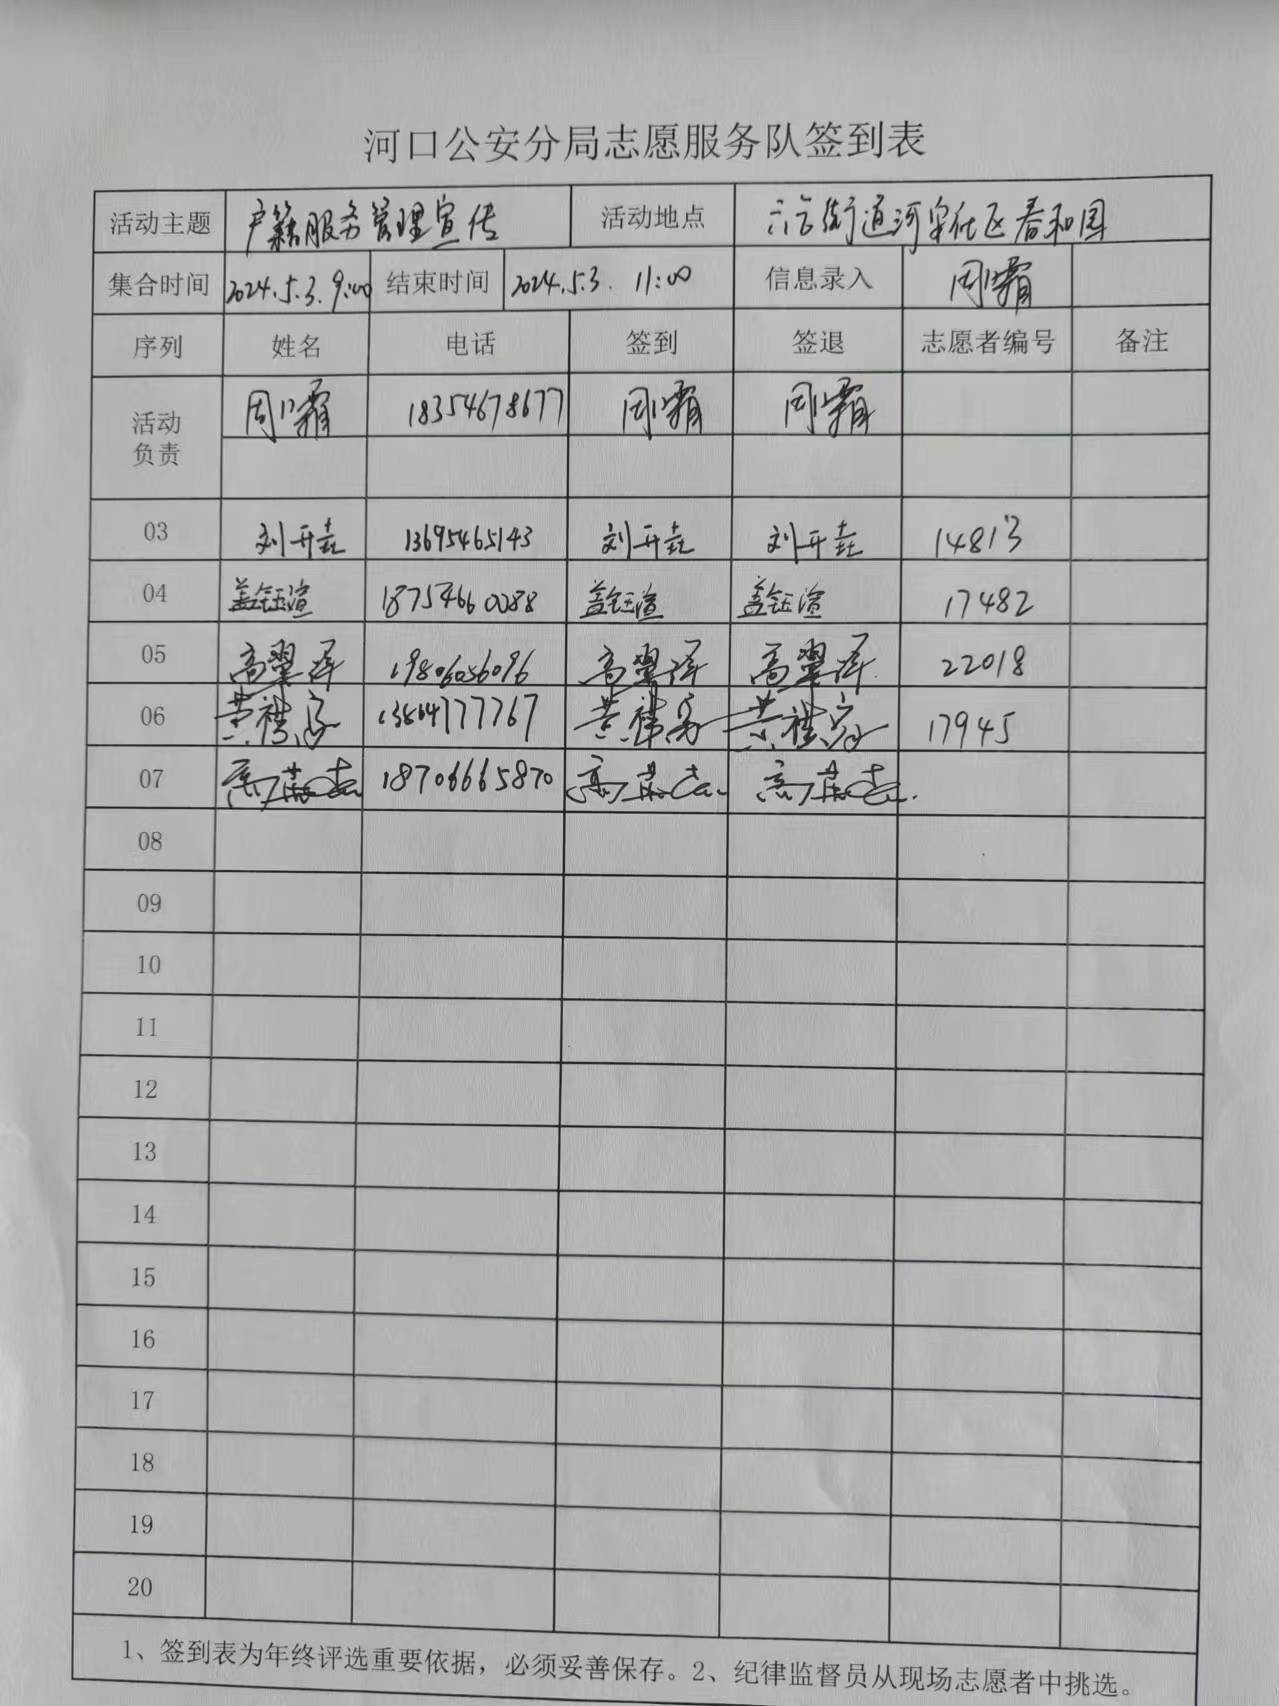 河口公安分局志愿服务队签到表
活动主题 户籍服务管理宣传 活动地点 六合街道河安社区春和园
集合时间 2024.5.3. 9:00 结束时间 2024.5.3. 11:00 信息录入 周霜
序列 姓名 电话 签到 签退 志愿者编号 备注
活动负责 周霜 18354678677 周霜 周霜
03 刘开垚 13695465143 刘开垚 刘开垚 14813
04 盖钰渲 18754660088 盖钰渲 盖钰渲 17482
05 高翠泽 19806056096 高翠泽 高翠泽 22018
06 13564777767 17945
07 18706665870
08
09
10
11
12
13
14
15
16
17
18
19
20
1、签到表为年终评选重要依据，必须妥善保存。2、纪律监督员从现场志愿者中挑选。